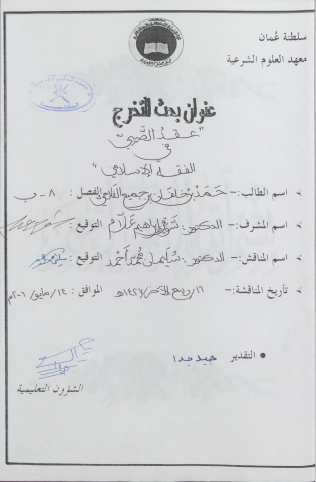 سلطنة عُمان
معهد العلوم الشرعية
عنوان بحث التخرج
"عقد الصَّبي
في
الفقه الإسلامي"
اسم الطالب:- حَمَد بن خلفان بن جميع الفلاحي الفصل: ٨-ب
اسم المشرف:- الدكتور: شوقي إبراهيم علّام التوقيع:
اسم المناقش:- الدكتور: سليمان محمد أحمد التوقيع:
تاريخ المناقشة:- ١٦/ربيع الآخر/١٤٢٧هـ الموافق: ١٤/مايو/٢٠٠٦م
التقدير جيد جدا
الشؤون التعليمية